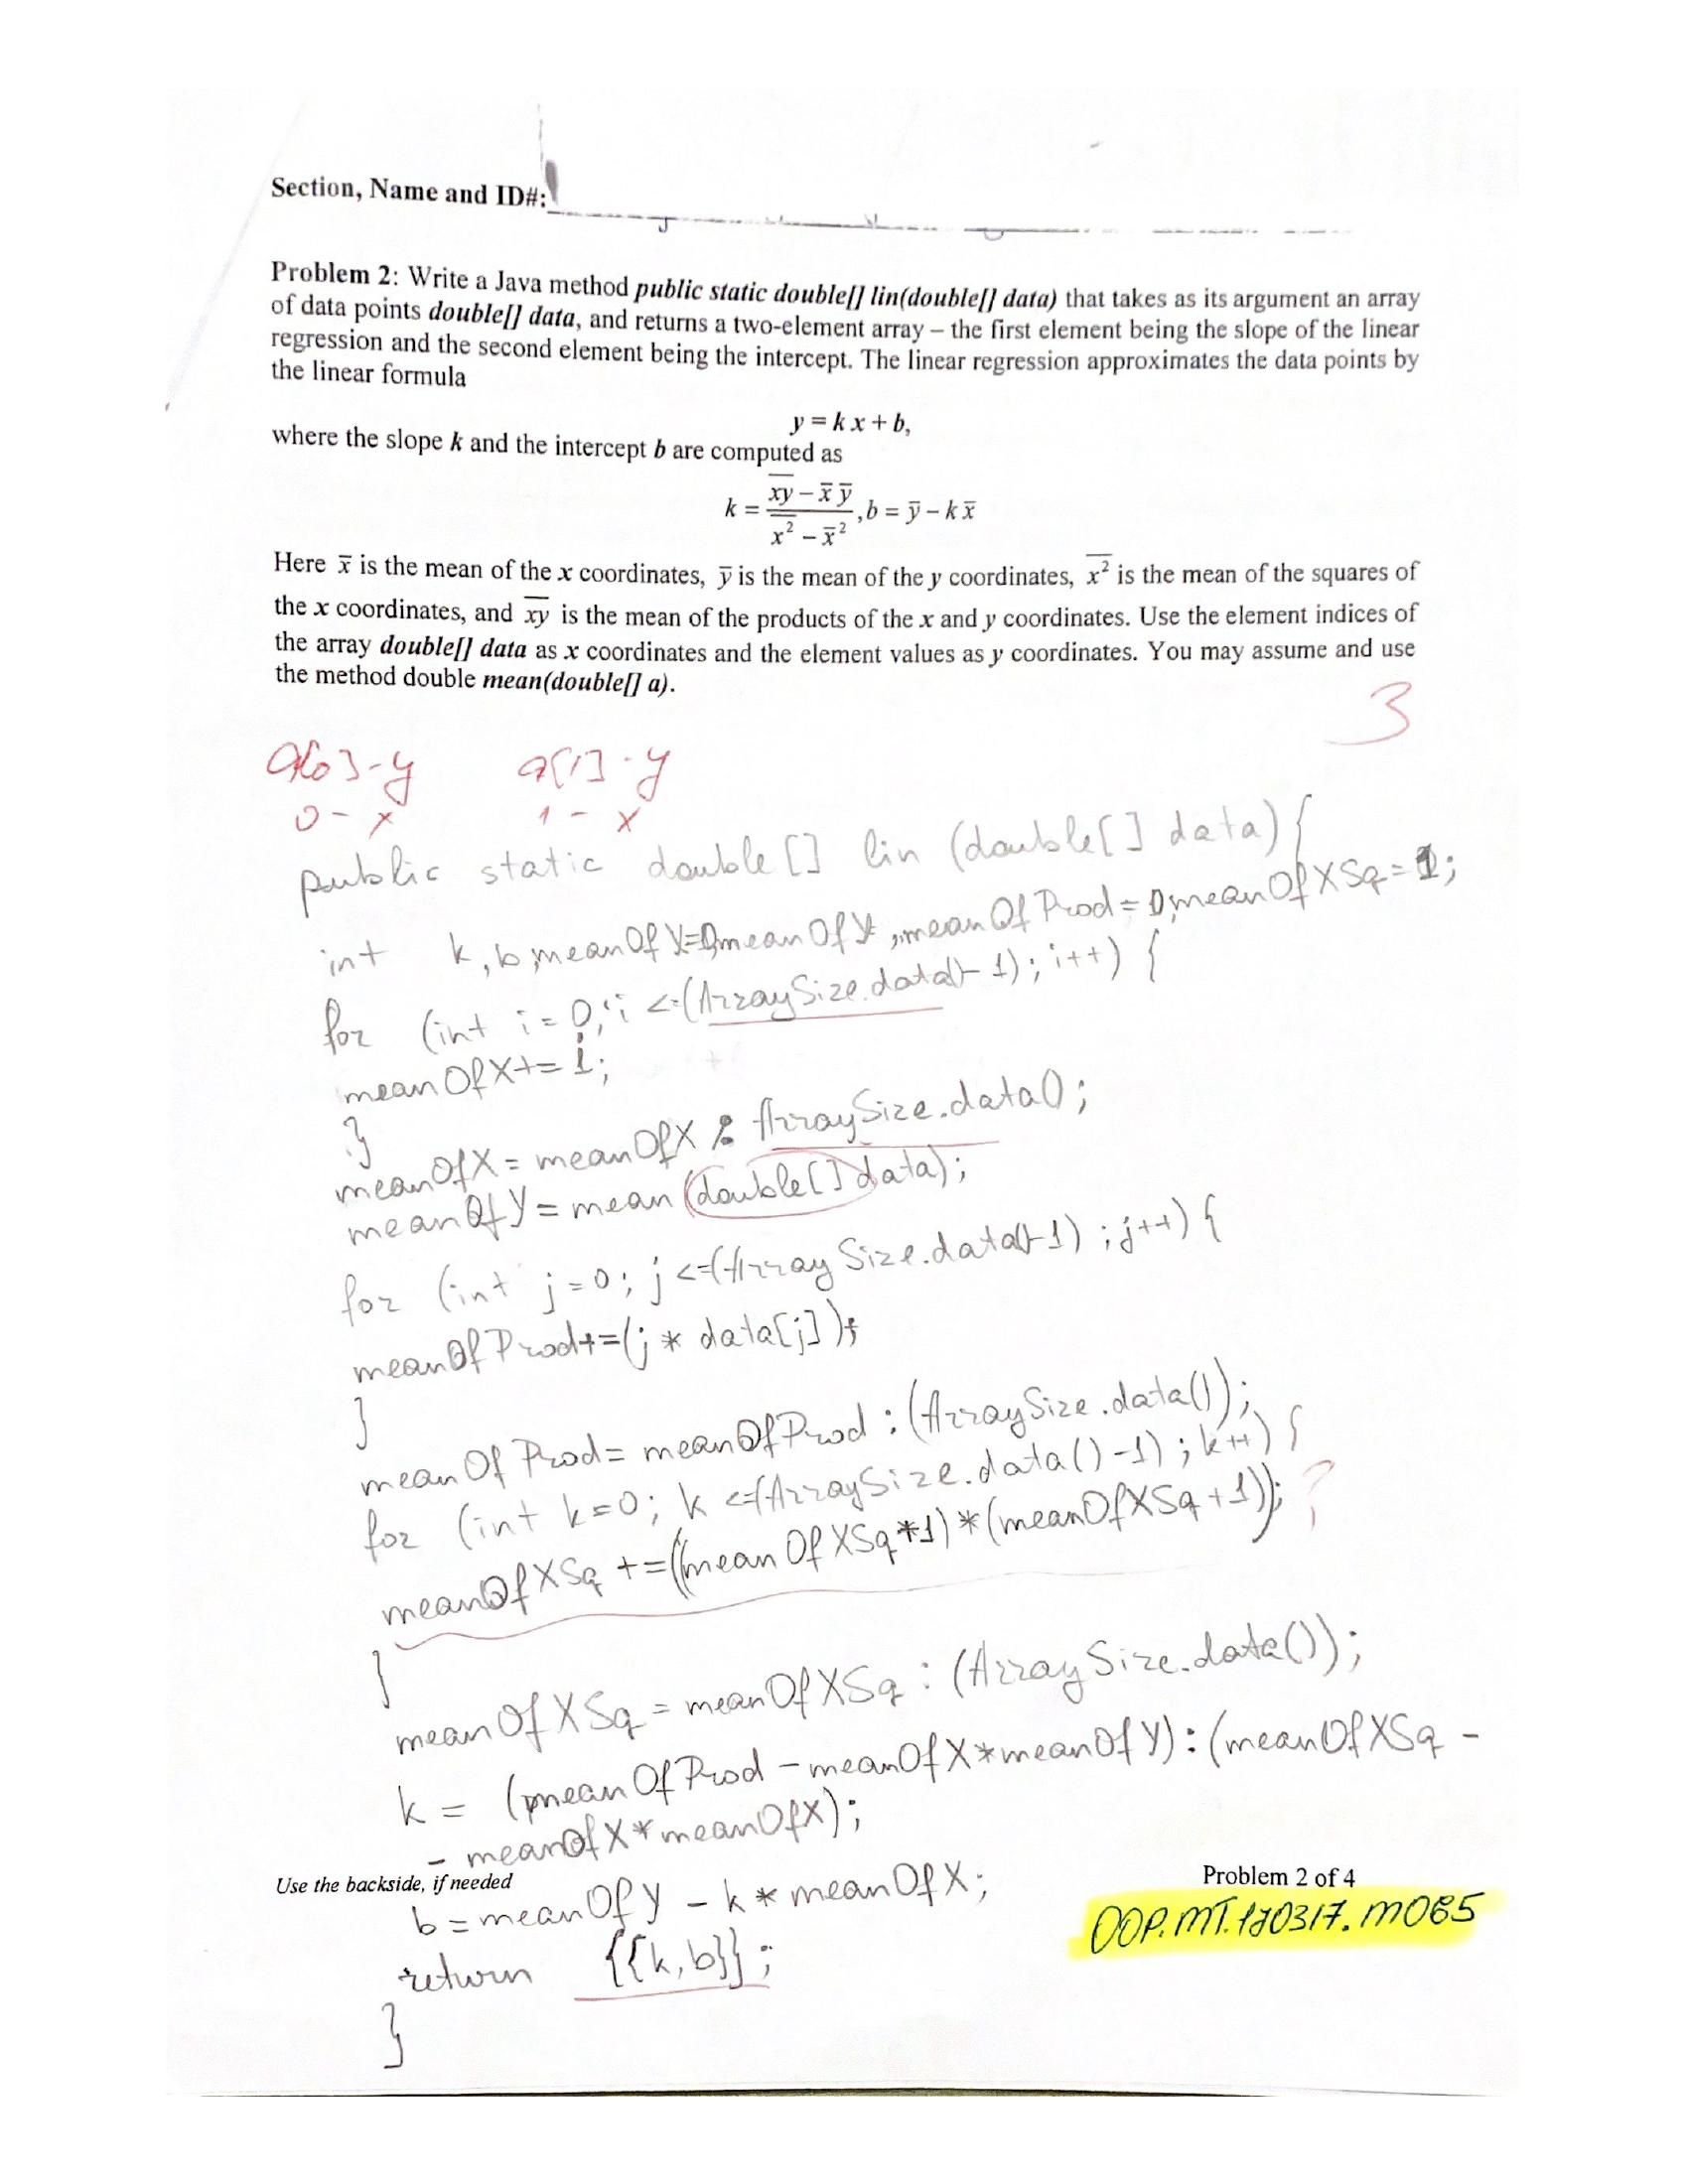 Section, Name and ID#:
Problem 2: Write a Java method public static double[] lin(double[] data) that takes as its argument an array
of data points double[] data, and returns a two-element array – the first element being the slope of the linear
regression and the second element being the intercept. The linear regression approximates the data points by
the linear formula
y = k x + b,
where the slope k and the intercept b are computed as
k = (x̅y̅ – x̅ y̅) / (x²̅ – x̅²), b = y̅ – k x̅
Here x̅ is the mean of the x coordinates, y̅ is the mean of the y coordinates, x²̅ is the mean of the squares of
the x coordinates, and x̅y̅ is the mean of the products of the x and y coordinates. Use the element indices of
the array double[] data as x coordinates and the element values as y coordinates. You may assume and use
the method double mean(double[] a).
3
a[0] - y a[1] - y
0 - x 1 - x
public static double[] lin (double[] data){
int k, b, meanOfX=0, meanOfY, meanOfProd=0, meanOfXSq=1;
for (int i=0; i<=(ArraySize.data()-1); i++) {
meanOfX+= i;
}
meanOfX = meanOfX : ArraySize.data();
meanOfY = mean (double[] data);
for (int j=0; j<=(ArraySize.data()-1); j++) {
meanOfProd+=(j * data[j]);
}
meanOfProd= meanOfProd : (ArraySize.data());
for (int k=0; k<=(ArraySize.data()-1); k++) {
meanOfXSq +=((meanOfXSq*1)*(meanOfXSq+1)); ?
}
meanOfXSq = meanOfXSq : (ArraySize.data());
k = (meanOfProd - meanOfX*meanOfY) : (meanOfXSq -
- meanOfX*meanOfX);
Use the backside, if needed
Problem 2 of 4
b = meanOfY - k * meanOfX;
OOP.MT.170317.M065
return {{k,b}};
}